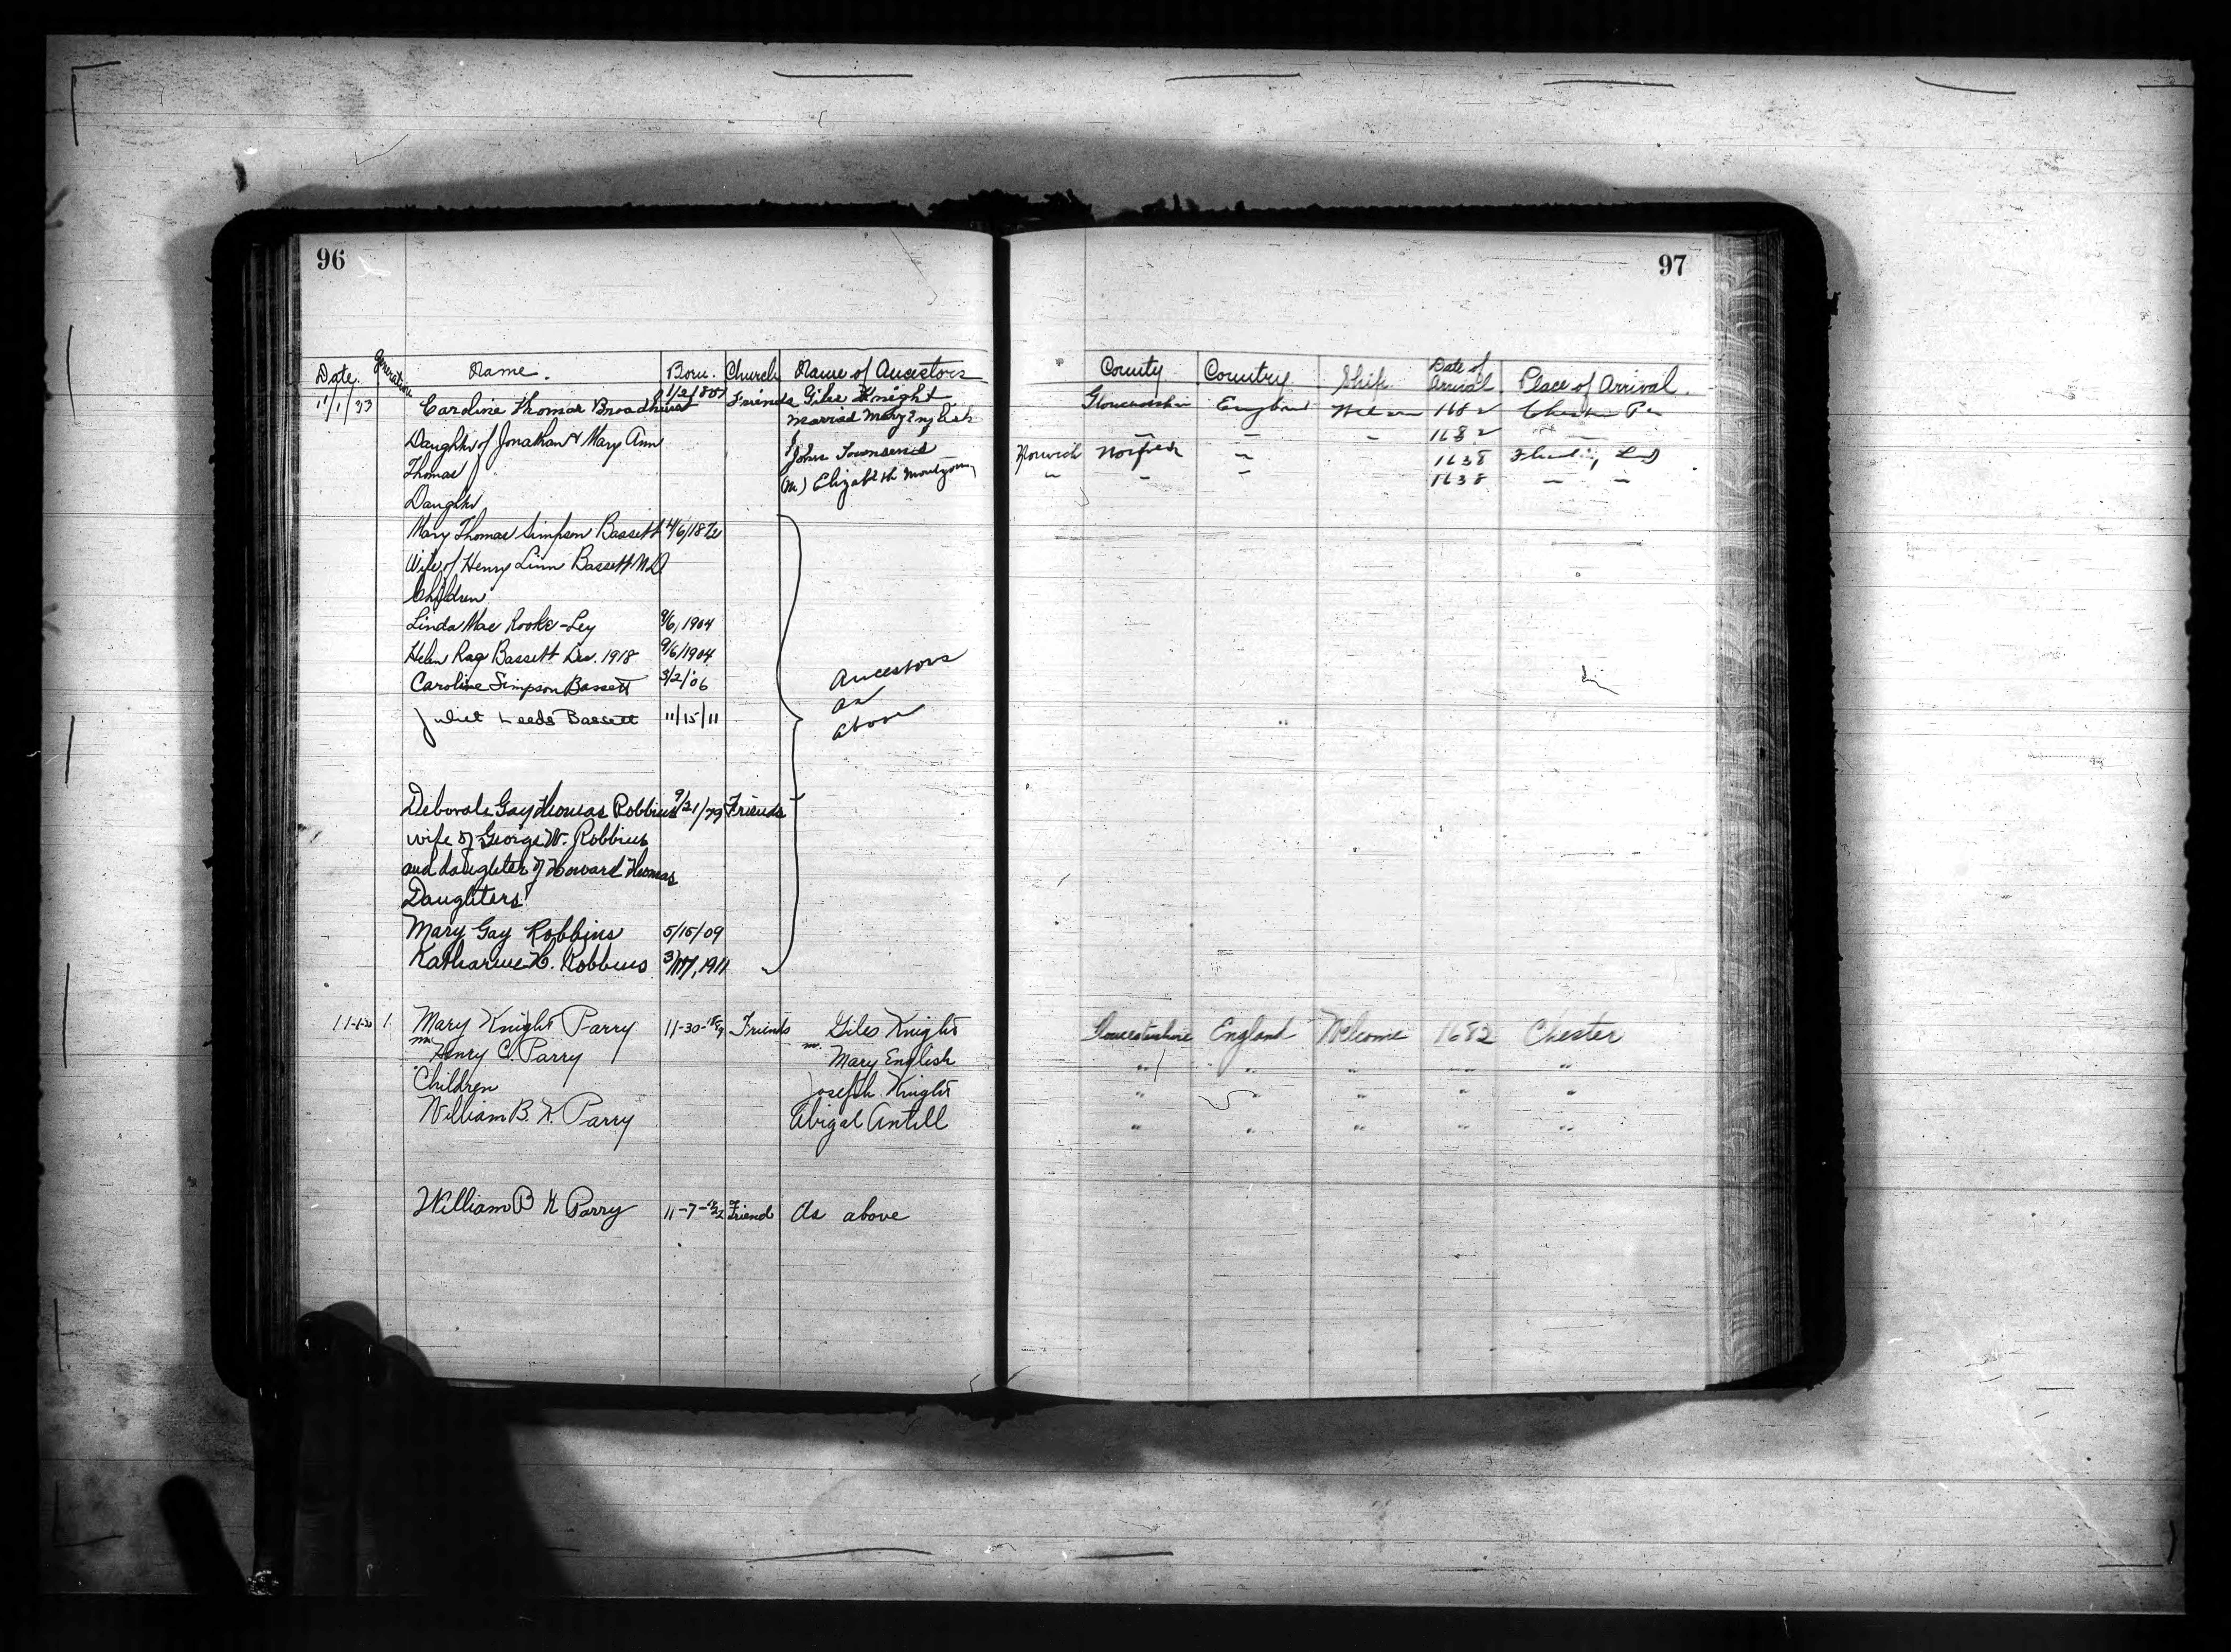 96
Date. Generation Name. Born. Church Name of Ancestors
11/1/33 Caroline Thomas Broadhurst Friends Giles Knight
married Mary English
Daughter of Jonathan & Mary Ann John Townsend
Thomas (M) Elizabeth Montgomery
Daughter
Mary Thomas Simpson Bassett
Wife of Henry Linn Bassett M D
Children
Linda Mae Rooke-Ley 9/6, 1904
Helen Ray Bassett Dec. 1918 9/6/1904
Caroline Simpson Bassett 3/2/'06
Juliet Leeds Bassett 11/15/11
Ancestors
as
above
Deborah Gay Thomas Robbins 9/21/79 Friends
wife of George W. Robbins
and daughter of Howard Thomas
Daughters
Mary Gay Robbins 5/15/09
Katharine H. Robbins 1911
1 Mary Knight Parry 11-30- Friends Giles Knight
m Henry C. Parry m. Mary English
Children Joseph Knight
William B. K. Parry Abigal Antill
William B K Parry 11-7- Friend As above
97
County Country Ship Date of Arrival Place of Arrival.
Gloucestershire England 1682 Chester Pa
" " 1682 "
Norwich Norfolk " 1638
" " " 1638 " "
Gloucestershire England Welcome 1682 Chester
" " " " "
" " " " "
" " " " "